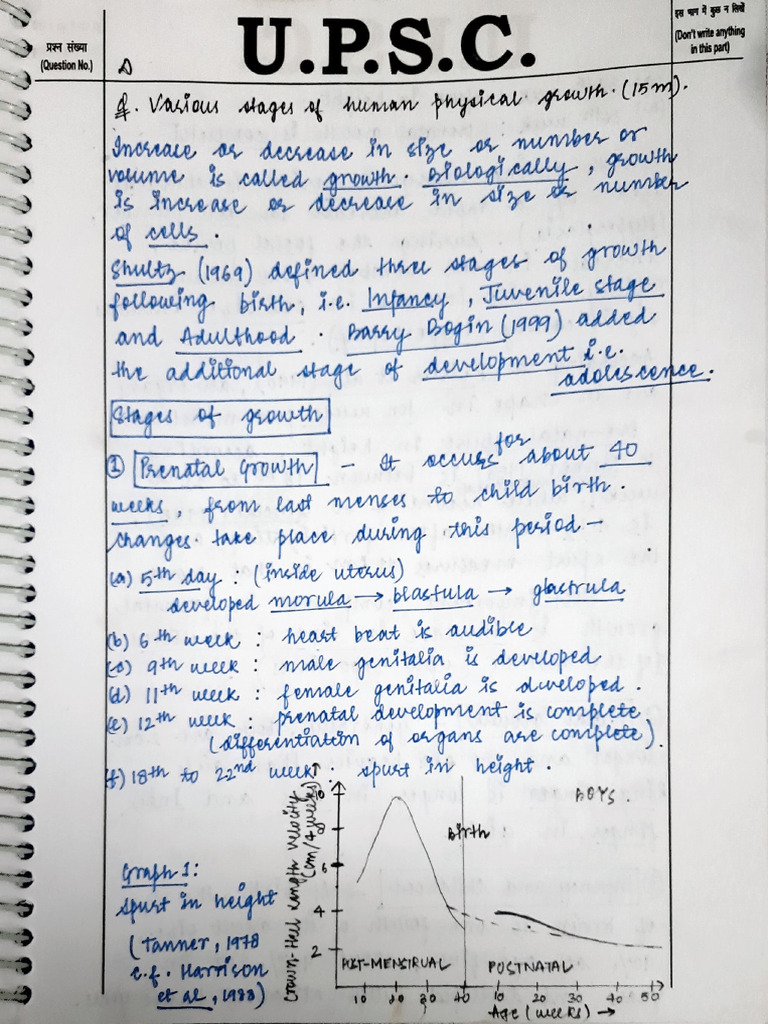 प्रश्न संख्या
(Question No.)
U.P.S.C.
इस भाग में कुछ न लिखें
(Don't write anything
in this part)
Q. Various stages of human physical growth. (15m).
Increase or decrease in size or number or
volume is called growth. Biologically, growth
is increase or decrease in size or number
of cells.
Shultz (1969) defined three stages of growth
following birth, i.e. Infancy, Juvenile stage
and Adulthood. Barry Bogin (1999) added
the additional stage of development i.e.
adolescence.
Stages of growth
① Prenatal Growth - It occurs for about 40
weeks, from last menses to child birth.
Changes take place during this period -
(a) 5th day : (inside uterus)
developed morula → blastula → glastrula
(b) 6th week : heart beat is audible
(c) 9th week : male genitalia is developed
(d) 11th week : female genitalia is developed.
(e) 12th week : prenatal development is complete
(differentiation of organs are complete).
(f) 18th to 22nd week : spurt in height.
Graph 1:
Spurt in height
(Tanner, 1978
c.f. Harrison
et al, 1988)
Crown-Heel length velocity
(cm/4 weeks) →
10
6
4
2
BOYS.
Birth
POST-MENSTRUAL POSTNATAL
10 20 30 40 10 20 30 40 50
Age (weeks) →